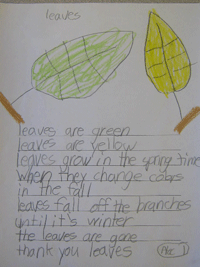 leaves
leaves are green
leaves are yellow
leaves grow in the spring time
when they change colors
in the fall
leaves fall off the branches
until it's winter
the leaves are gone
thank you leaves